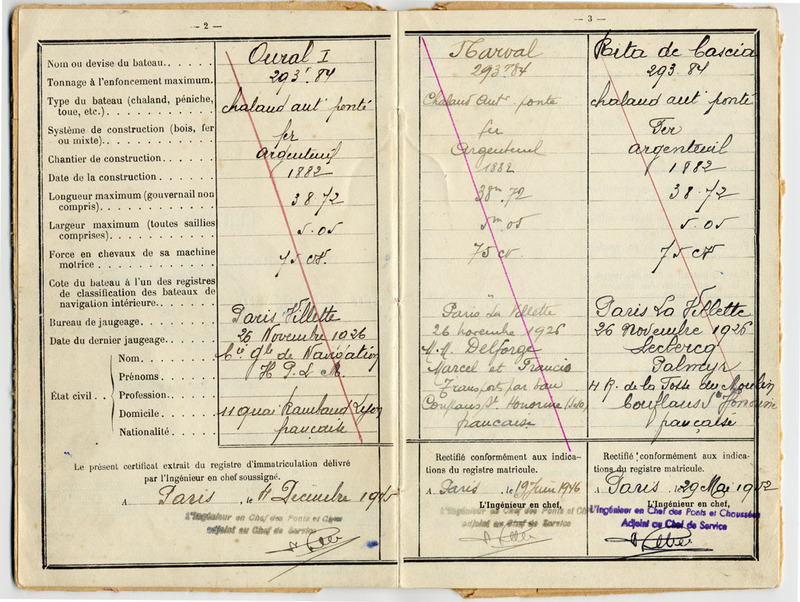 — 2 —
Nom ou devise du bateau. . . . . . Oural I
Tonnage à l'enfoncement maximum. 293ᵗ.84
Type du bateau (chaland, péniche, toue, etc.) . . . . . . chaland autʳ ponté
Système de construction (bois, fer ou mixte). . . . . . fer
Chantier de construction. . . . . . Argenteuil
Date de la construction. . . . . . 1882
Longueur maximum (gouvernail non compris). . . . . . 38.72
Largeur maximum (toutes saillies comprises). . . . . . 5.05
Force en chevaux de sa machine motrice. . . . . . 75 cv.
Cote du bateau à l'un des registres de classification des bateaux de navigation intérieure. . . . . .
Bureau de jaugeage. . . . . . Paris Villette
Date du dernier jaugeage. . . . . . 26 Novembre 1926
État civil . .
Nom. . . . . . Cie Gle de Navigation
Prénoms. . . . . . H P L M.
Profession. . . . . .
Domicile. . . . . . 11 quai Rambaud Lyon
Nationalité. . . . . . française
Le présent certificat extrait du registre d'immatriculation délivré
par l'Ingénieur en chef soussigné.
A Paris, le Décembre
l'Ingénieur en Chef des Ponts et Chées
adjoint au Chef de Service
— 3 —
Narval
293ᵗ84
Chaland Autʳ ponté
fer
Argenteuil
1882
38ᵐ.72
5ᵐ.05
75 cv
Paris La Villette
26 novembre 1926
M.M. Delforge
Marcel et Francis
Transport par eau
Conflans Sᵗ Honorine
française
Rectifié conformément aux indications du registre matricule.
A Paris, le 19 Juin 1946
L'Ingénieur en chef,
l'Ingénieur en Chef des Ponts et
adjoint au Chef de Service
Rita de Cascia
293.84
chaland autʳ ponté
Fer
argenteuil
1882
38.72
5.05
75 cv
Paris La Villette
26 Novembre 1926
Leclercq
Palmyr
R. de la Fosse du Moulin
Conflans Sᵗᵉ Honorine
française
Rectifié conformément aux indications du registre matricule.
A Paris, le 29 Mai 1952
L'Ingénieur en chef,
L'Ingénieur en Chef des Ponts et Chaussées
Adjoint au Chef de Service